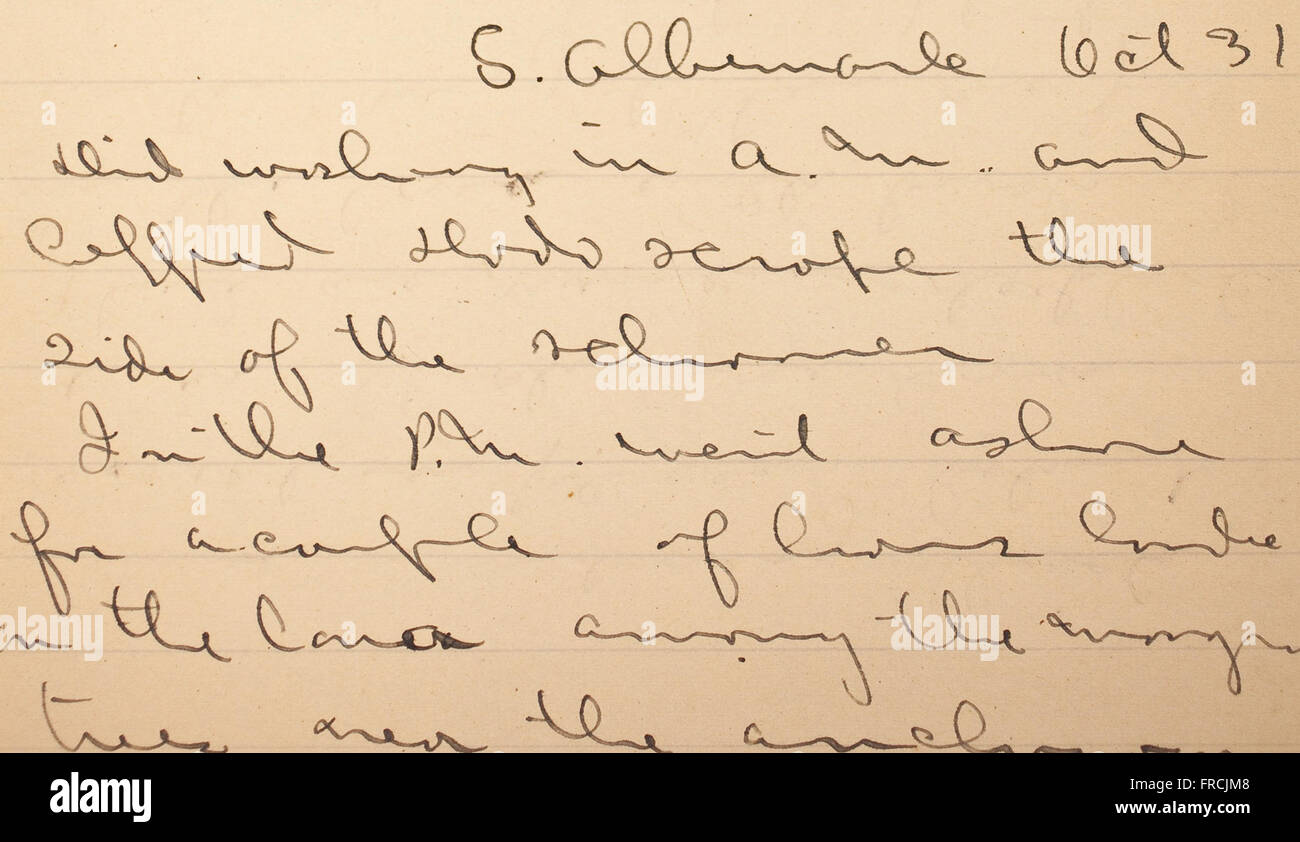 S. Albemarle Oct 31
Did washing in A.M. and
helped scrape the
side of the schooner
In the P.M. went ashore
for a couple of hours
on the among the
trees near the
alamy
Image ID: FRCJM8
www.alamy.com